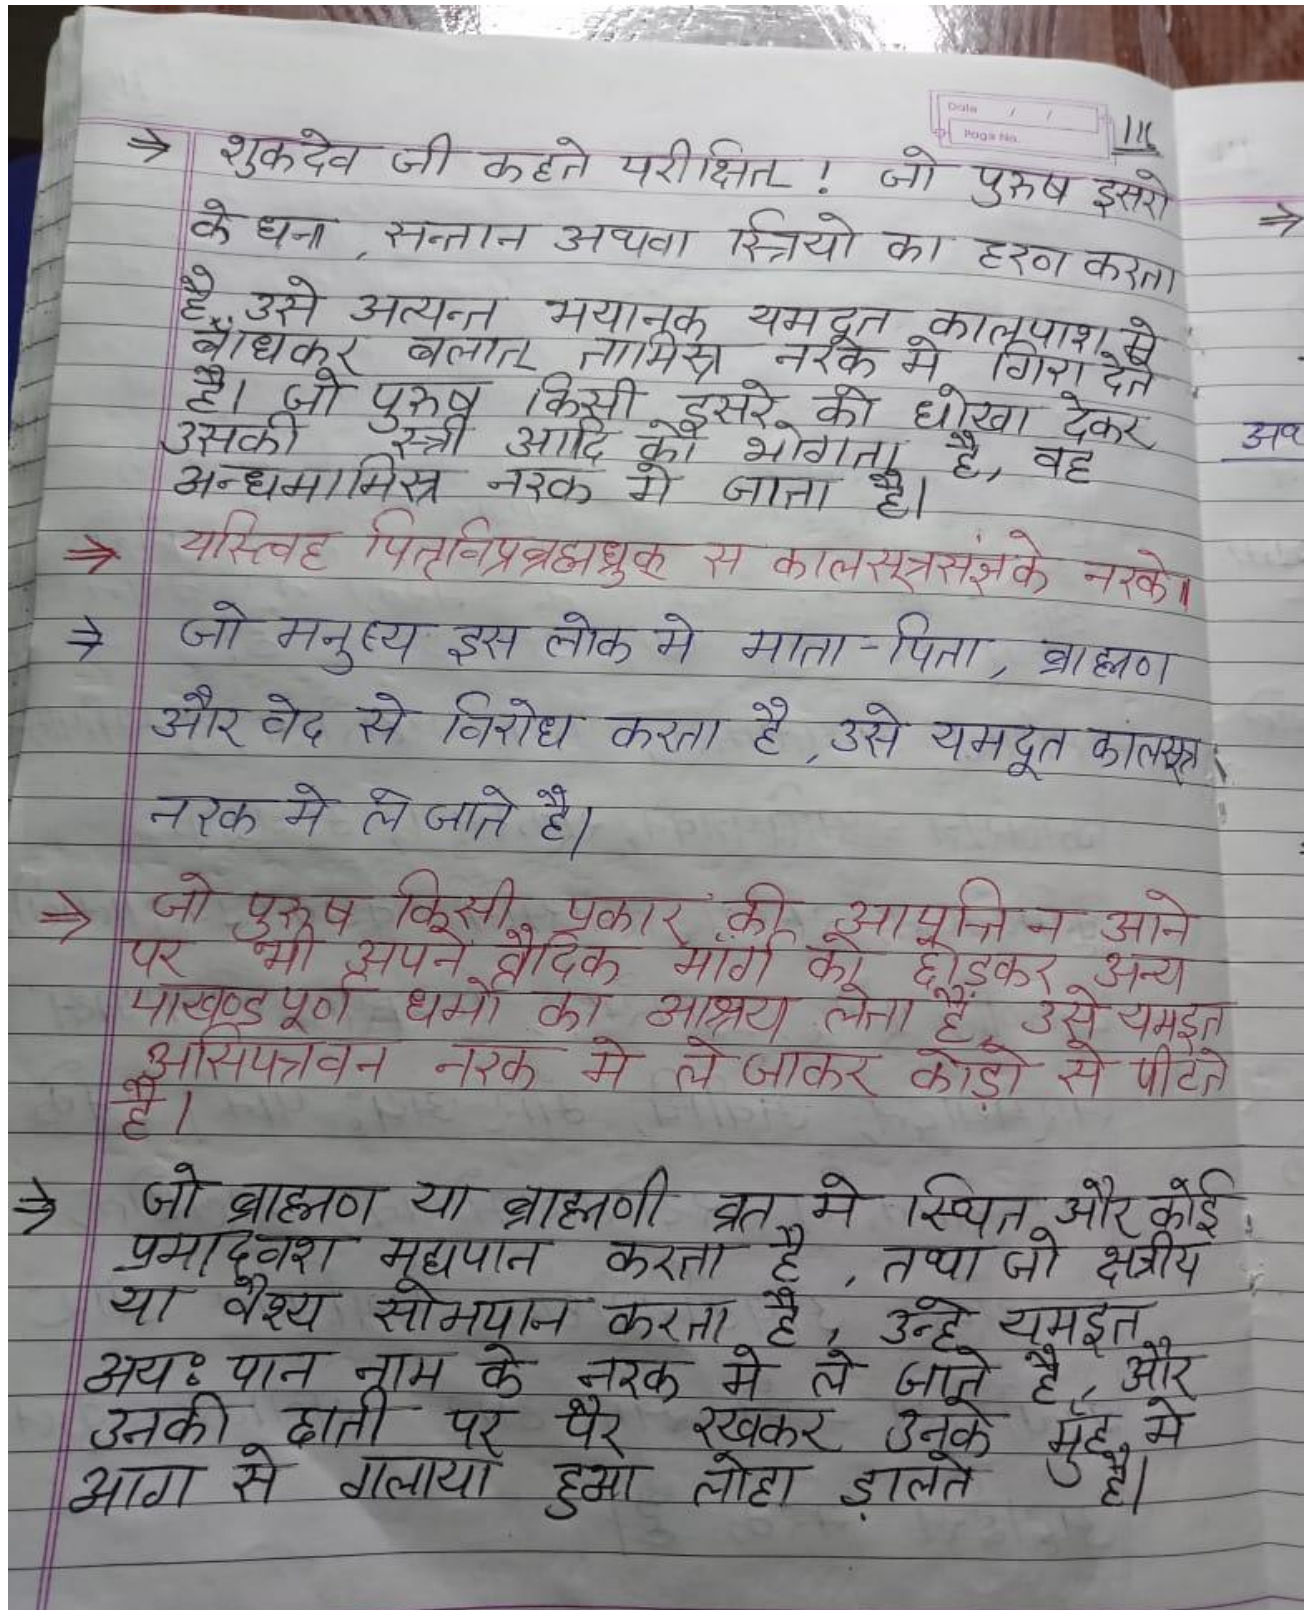 Date / /
Page No.
111
⇒ शुकदेव जी कहते परीक्षित! जो पुरुष इसरो
के धन, सन्तान अथवा स्त्रियो का हरण करता
है, उसे अत्यन्त भयानक यमदूत कालपाश मे
बाँधकर बलात् तामिस्त्र नरक मे गिरा देते
है। जो पुरुष किसी इसरे को धोखा देकर
उसकी स्त्री आदि को भोगता है, वह
अन्धमामिस्त्र नरक मे जाता है।
⇒ यस्त्विह पितृविप्रब्रह्मध्रुक् स कालसूत्रसंज्ञके नरके॥
⇒ जो मनुष्य इस लोक मे माता-पिता, ब्राह्मण
और वेद से विरोध करता है, उसे यमदूत कालसूत्र
नरक मे ले जाते है।
⇒ जो पुरुष किसी प्रकार की आपत्ति न आने
पर भी अपने वैदिक मार्ग को छोड़कर अन्य
पाखण्डपूर्ण धर्मो का आश्रय लेता है, उसे यमइत
असिपत्रवन नरक मे ले जाकर कोड़ो से पीटते
है।
⇒ जो ब्राह्मण या ब्राह्मणी व्रत मे स्थित और कोई
प्रमादवश मद्यपान करता है, तथा जो क्षत्रीय
या वैश्य सोमपान करता है, उन्हे यमइत
अयः पान नाम के नरक मे ले जाते है, और
उनकी छाती पर पैर रखकर उनके मुँह मे
आग से गलाया हुआ लोहा ड़ालते है।
⇒
अथ